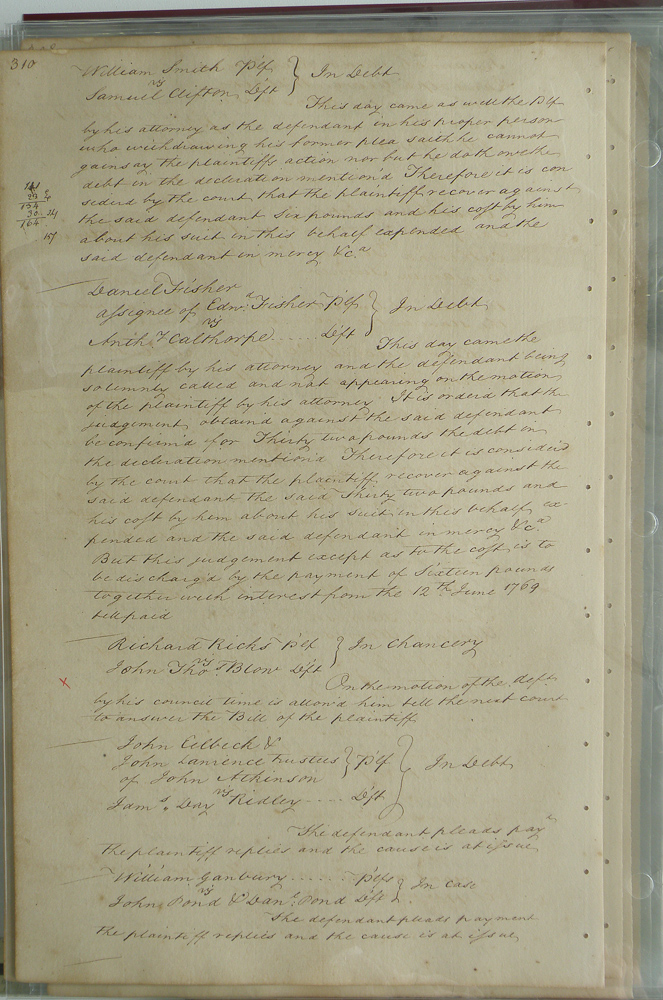 310
William Smith Plf } In Debt
vs
Samuel Clifton Deft
This day came as well the Plf
by his attorney as the defendant in his proper person
who withdrawing his former plea saith he cannot
gainsay the plaintiffs action nor but he doth owe the
debt in the declaration mention'd Therefore it is con
siderd by the court that the plaintiff recover against
the said defendant Six pounds and his cost by him
about his suit in this behalf expended and the
said defendant in mercy &c.a
Daniel Fisher
assignee of Edw.d Fisher Plf } In Debt
vs
Anth.y Calthorpe ...... Deft
This day came the
plaintiff by his attorney and the defendant being
solemnly called and not appearing on the motion
of the plaintiff by his attorney It is orderd that the
judgement obtaind against the said defendant
be confirm'd for Thirty two pounds the debt in
the declaration mention'd Therefore it is consider'd
by the court that the plaintiff recover against the
said defendant the said Thirty two pounds and
his cost by him about his suit in this behalf ex
pended and the said defendant in mercy &c.a
But this judgement except as to the cost is to
be discharg'd by the payment of Sixteen pounds
together with interest from the 12th June 1769
till paid
Richard Ricks Plf } In Chancery
vs
John Tho.s Blow Deft
On the motion of the deft
by his council time is allow'd him till the next court
to answer the Bill of the plaintiff
John Eelbeck &
John Lawrence trustees } Plf } In Debt
of John Atkinson
vs
Jam.s Day Ridley .... Deft
The defendant pleads pay.t
the plaintiff replies and the cause is at issue
William Ganbury ...... Plf } In Case
vs
John Pond & Dan.l Pond Deft
The defendant pleads payment
the plaintiff replies and the cause is at issue